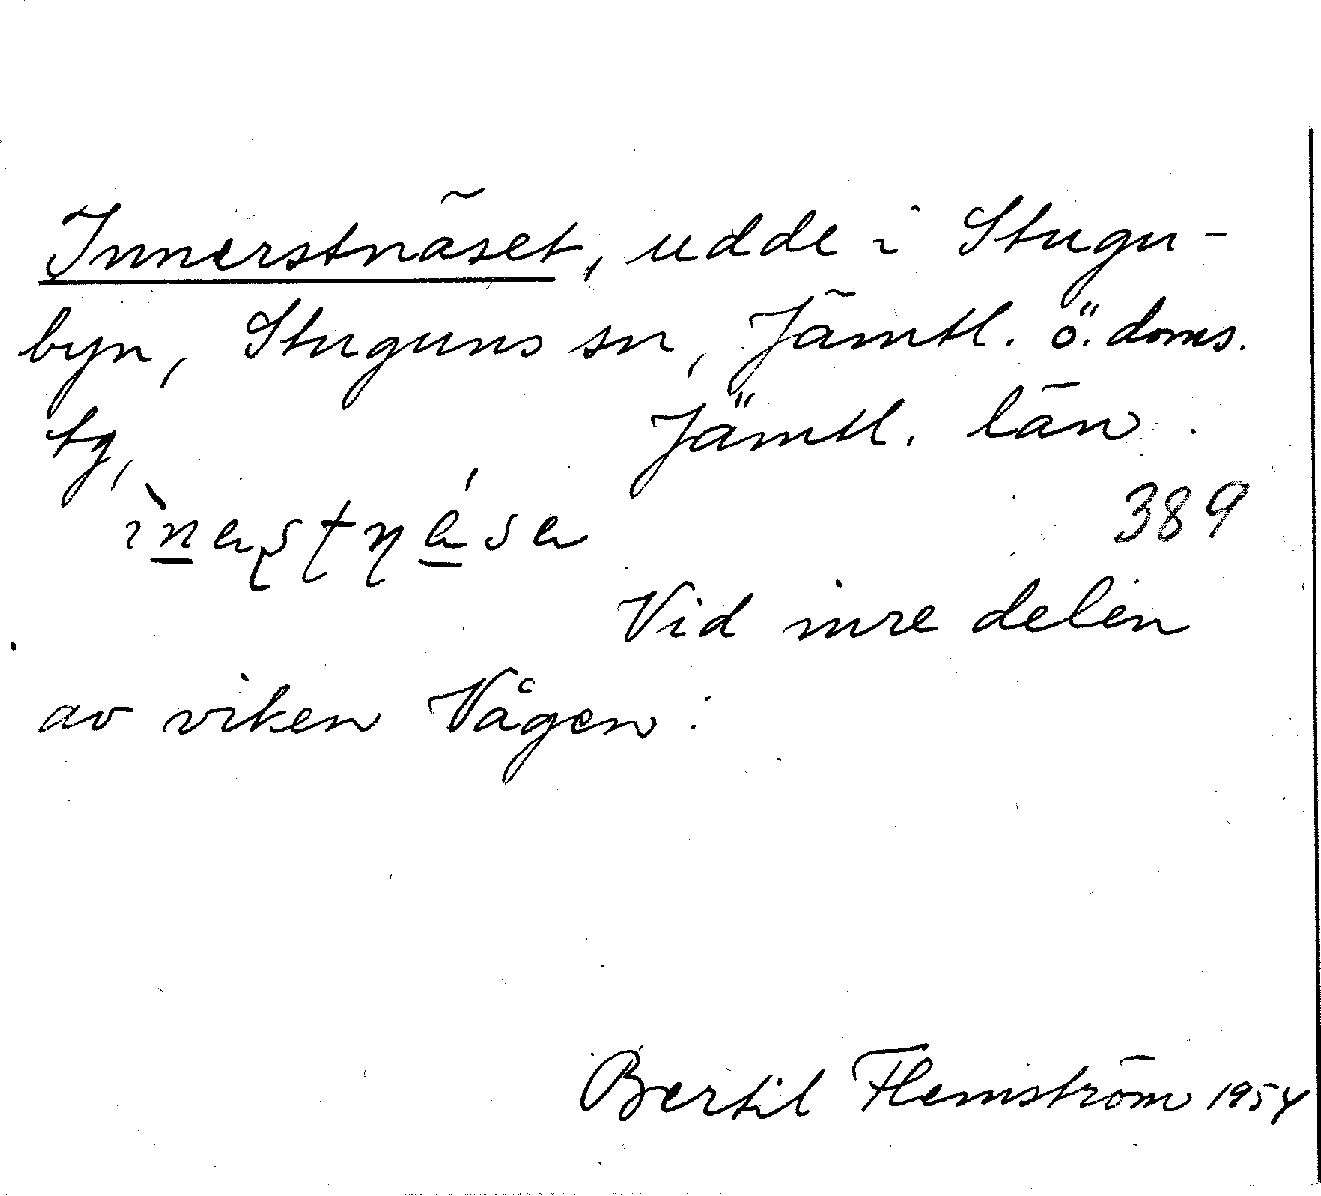 Innerstnäset, udde i Stugu-
byn, Stuguns sn, Jämtl. ö. doms.
tg, Jämtl. län.
389
Vid inre delen
av viken Vågen.
Bertil Flemström 1954